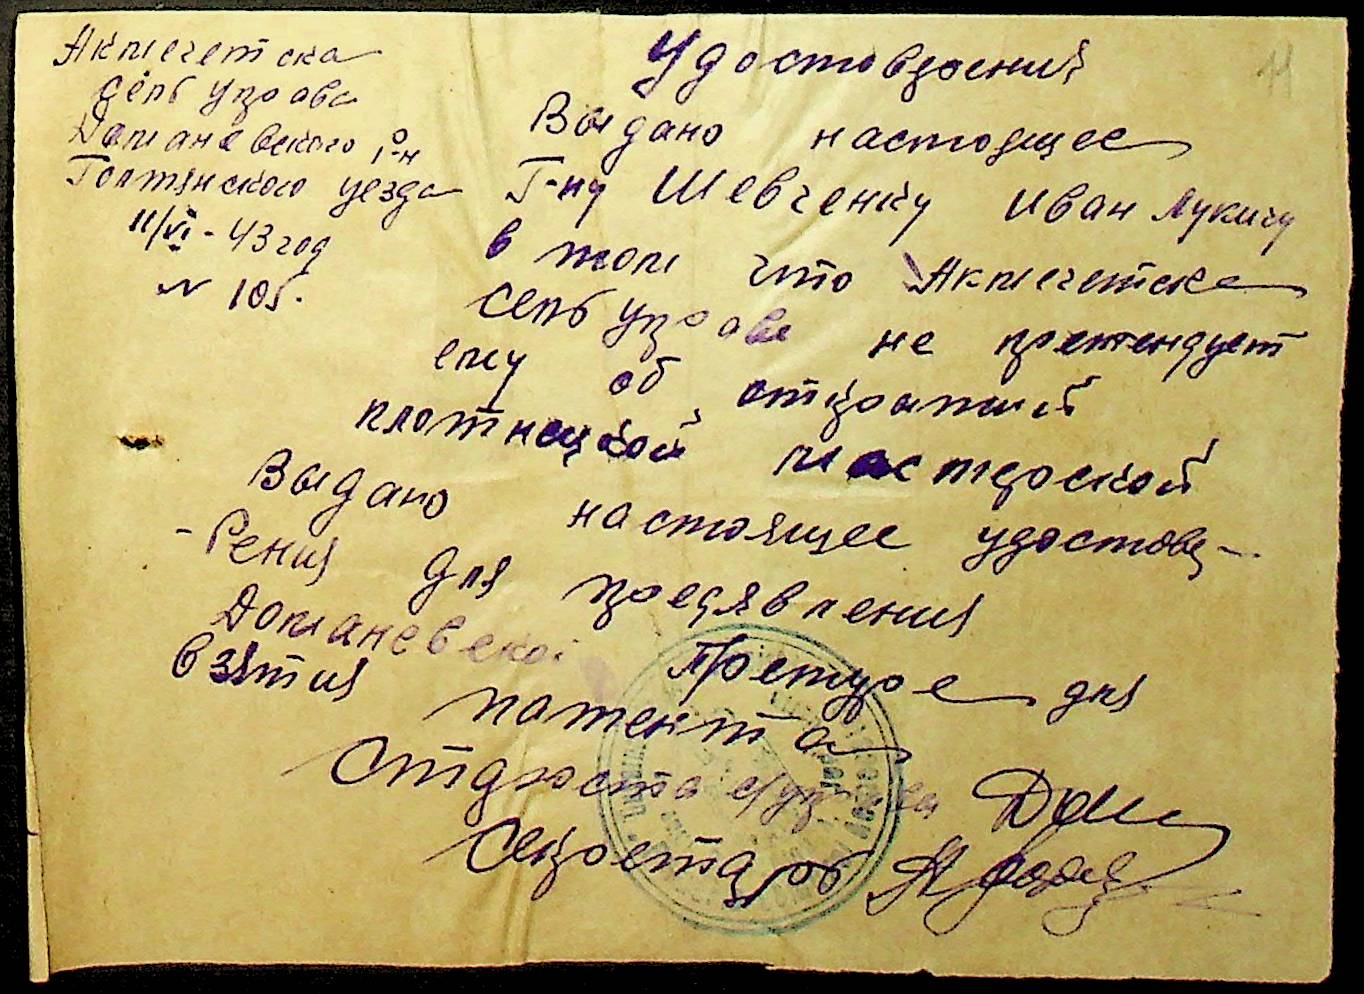 Акмечетска
Сель управа
Доманевского р-н
Голтянского уезда
11/VI - 43 год
N 105.
11
Удостоврения
Выдано настоящее
Г-ну Шевченку Иван Лукичу
в том что Акмечетска
Сель управа не претендует
ему об открытий
плотницкой мастерской
Выдано настоящее удостовер-
-рения для предявления
Доманевской Претуре для
взятия патента
Староста с/управа
Секретарь